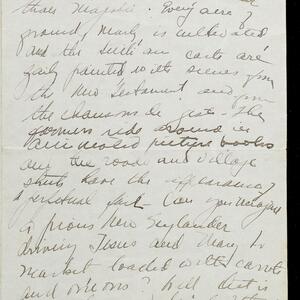 thats majestic. Every acre of
ground nearly is cultivated
and the Sicilian carts are
gaily painted with scenes from
the New Testament and from
the chansons de geste. The
farmers ride around in
animated picture books
and the roads and village
streets have the appearance of
perpetual fair. Can you imagine
a pious New Englander
driving Jesus and Mary to
market loaded with carrots
and onions? Well that is